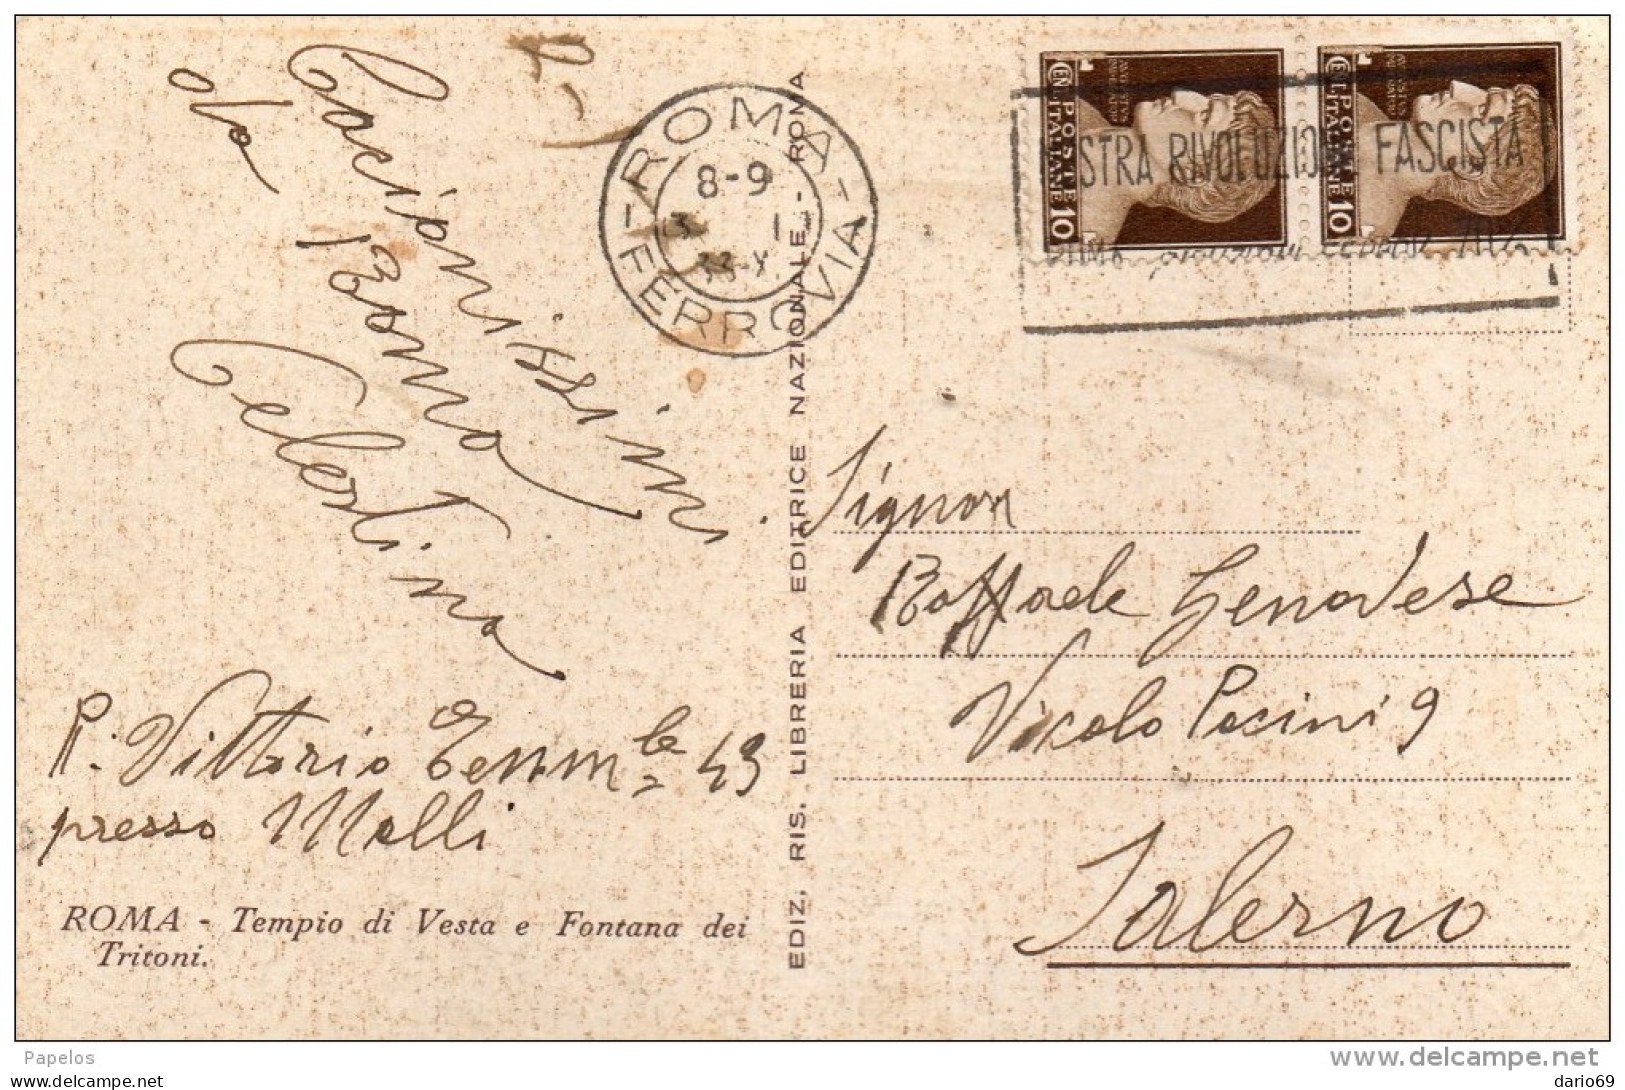 Cacionissimi
da Roma
Celestina
P. Vittorio Eem.le 43
presso Melli
ROMA - Tempio di Vesta e Fontana dei
Tritoni.
ROMA-
-FERROVIA-
8-9
3 1
33-X
EDIZ. RIS. LIBRERIA EDITRICE NAZIONALE - ROMA
CENT. POSTE ITALIANE 10
CENT. POSTE ITALIANE 10
STRA RIVOLUZIONE FASCISTA
ROMA
Signor
Raffaele Genovese
Vicolo Pacini 9
Salerno
Papelos
www.delcampe.net
http://www.delcampe.net
dario69